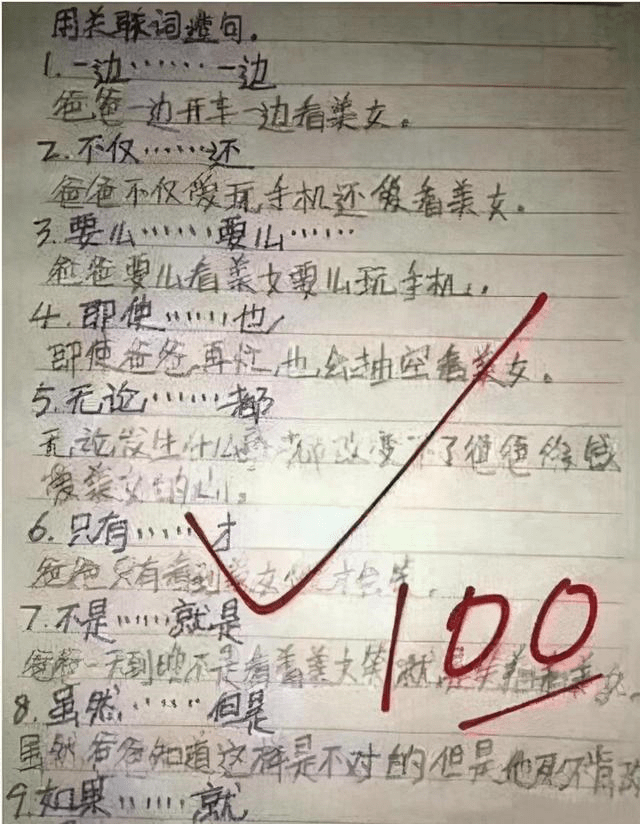 用关联词造句。
1.一边……一边
爸爸一边开车一边看美女。
2.不仅……还
爸爸不仅爱玩手机还爱看美女。
3.要么……要么……
爸爸要么看美女要么玩手机。
4.即使……也
即使爸爸再忙也会抽空看美女。
5.无论……都
无论发生什么事都改变不了爸爸
爱美女的心。
6.只有……才
爸爸只有看到美女他才会笑。
7.不是……就是
爸爸一天到晚不是看着美女笑就是
8.虽然……但是
虽然爸爸知道这样是不对的但是他死不肯改
9.如果……就
100